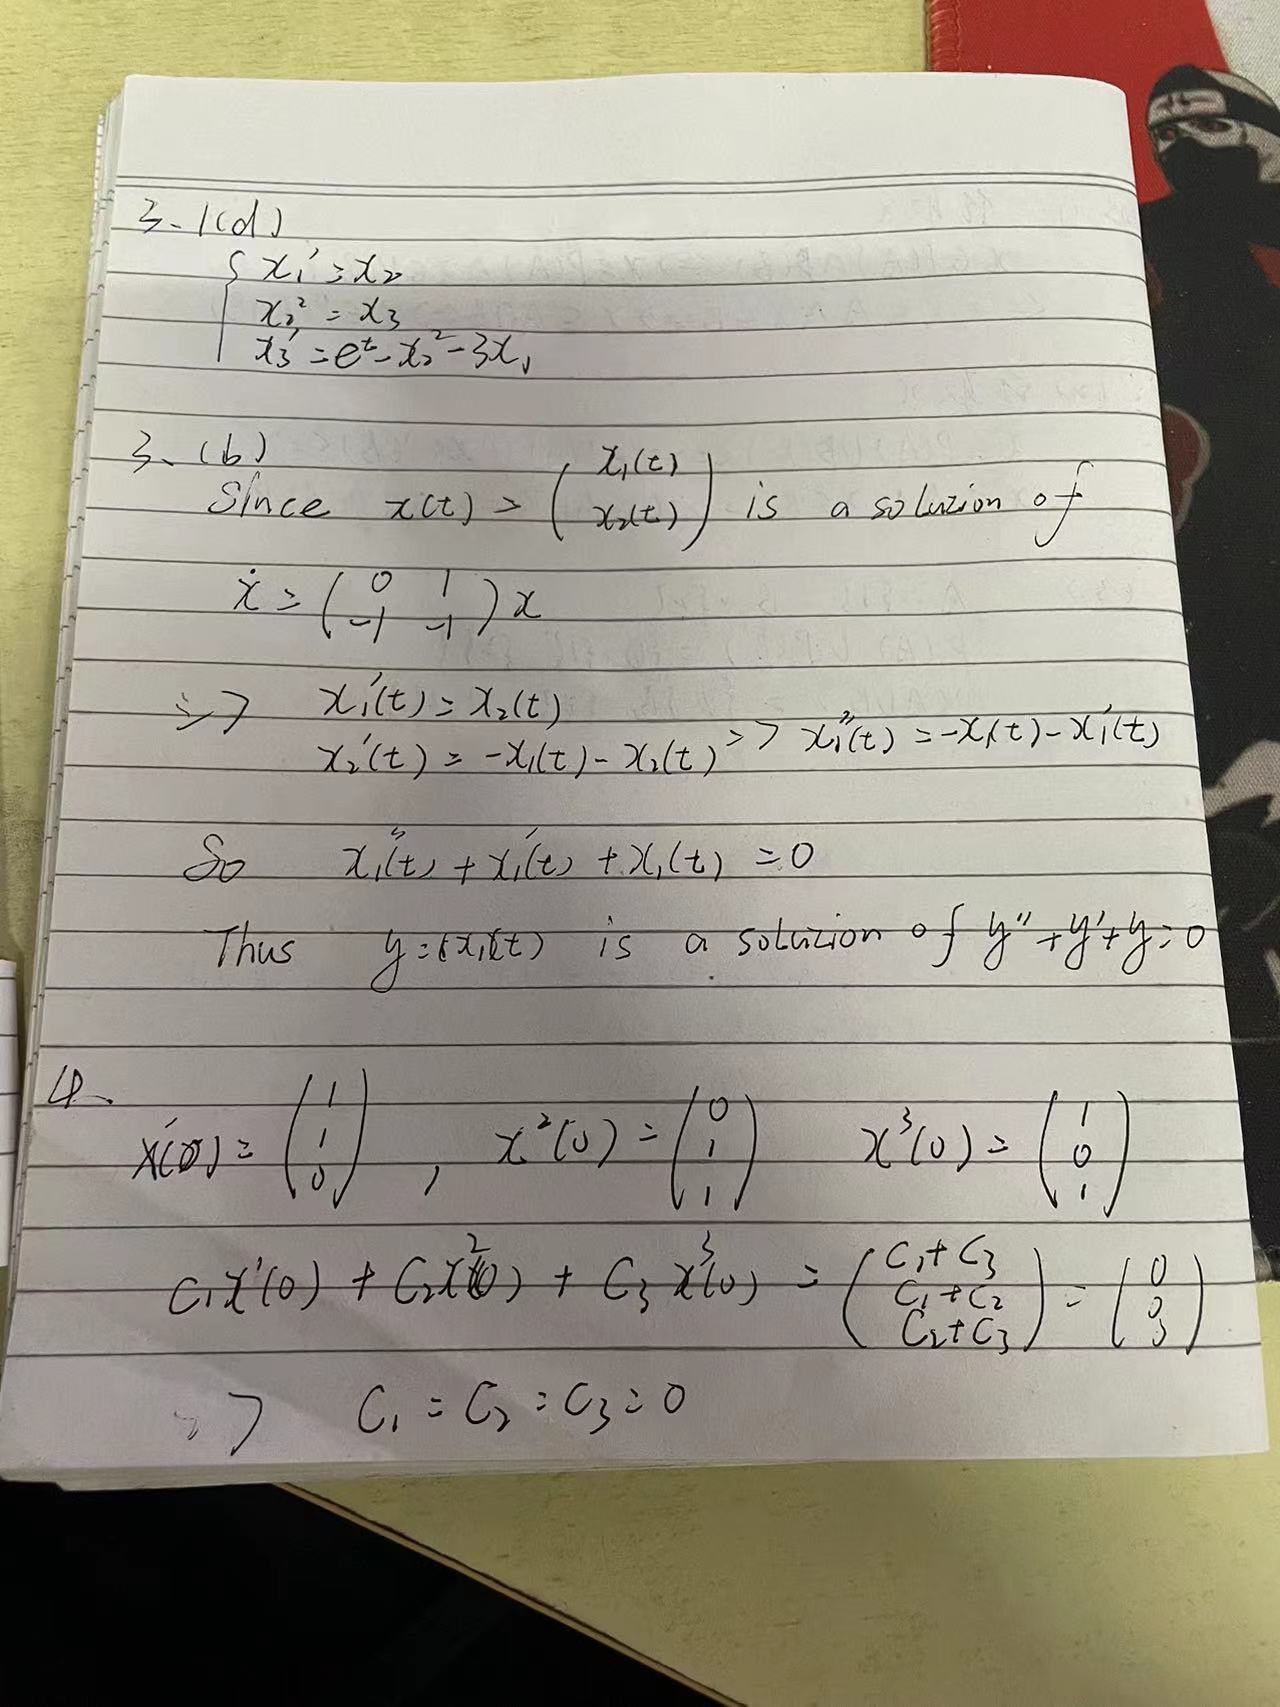 3.1(d)
{ x₁' = x₂
x₂² = x₃
x₃' = eᵗ - x₂² - 3x₁
3. (b)
Since x(t) = ( x₁(t) x₂(t) ) is a soluzion of
ẋ = ( 0 1 -1 -1 ) x
=> x₁'(t) = x₂(t)
x₂'(t) = -x₁(t) - x₂(t) => x₁''(t) = -x₁(t) - x₁'(t)
So x₁''(t) + x₁'(t) + x₁(t) = 0
Thus y = x₁(t) is a soluzion of y'' + y' + y = 0
4.
x¹(0) = ( 1 1 0 ) , x²(0) = ( 0 1 1 ) x³(0) = ( 1 0 1 )
C₁x¹(0) + C₂x²(0) + C₃x³(0) = ( C₁+C₃ C₁+C₂ C₂+C₃ ) = ( 0 0 0 )
=> C₁ = C₂ = C₃ = 0